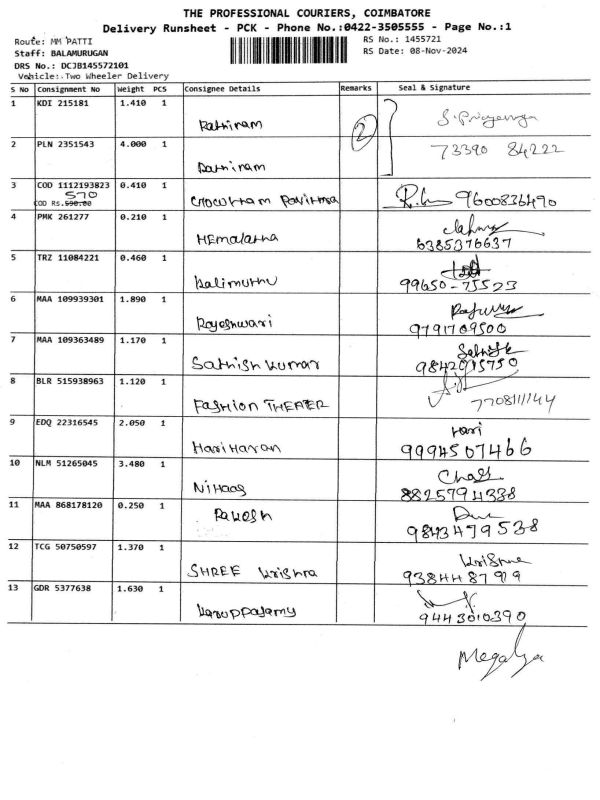 THE PROFESSIONAL COURIERS, COIMBATORE
Delivery Runsheet - PCK - Phone No.:0422-3505555 - Page No.:1
Route: MM PATTI
RS No.: 1455721
Staff: BALAMURUGAN
RS Date: 08-Nov-2024
DRS No.: DCJB145572101
Vehicle: Two Wheeler Delivery
S No Consignment No Weight PCS Consignee Details Remarks Seal & Signature
1 KDI 215181 1.410 1
Rathinam 2 S. Priyanga
2 PLN 2351543 4.000 1 73390 84222
Rathinam
3 COD 1112193823 0.410 1
570
COD Rs.690.00 Gowtham Pavithra 9600836490
4 PMK 261277 0.210 1
Hemalatha 6385376637
5 TRZ 11084221 0.460 1
Kalimuthu 99650-75523
6 MAA 109939301 1.890 1
Rajeshwari 9791709500
7 MAA 109363489 1.170 1 Sathish
Sathish Kumar 9842015750
8 BLR 515938963 1.120 1
Fashion THEATER 7708111144
9 EDQ 22316545 2.050 1 Hari
Hariharan 9994507466
10 NLM 51265045 3.480 1
Nihaas 8825794338
11 MAA 868178120 0.250 1
Rakesh 9843479538
12 TCG 50750597 1.370 1 Krishna
SHREE Krishna 9384487919
13 GDR 5377638 1.630 1
Karuppasamy 9443010390